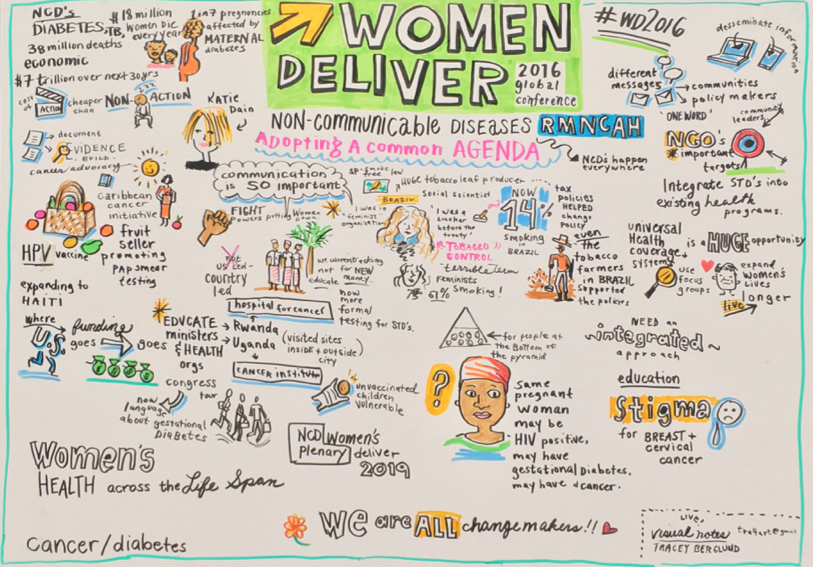 NCD's
DIABETES, TB,
38 million deaths
economic
$7 trillion over next 30 yrs
$18 million
Women Die
every year
1 in 7 pregnancies
affected by
MATERNAL
diabetes
WOMEN
DELIVER
2016
global
conference
#WD2016
disseminate information
different
messages
communities
policy makers
'ONE WORD'
community
leaders
NGO's
important
targets!
Integrate STD's into
existing health
programs.
cost of
ACTION
cheaper
than
NON-ACTION
KATIE
Dain
NON-COMMUNICABLE DISEASES RMNCAH
Adopting A common AGENDA
NCD's happen
everywhere
document
EVIDENCE
BUILD-
cancer advocacy
communication
is SO important!
FIGHT
Powers putting
Women
Caribbean
cancer
initiative
fruit
seller
promoting
PAP smear
testing
HPV vaccine
expanding to
HAITI
smoke
free law
HUGE tobacco leaf producer
Social scientist
BRAZIL
I was a
feminist
organization
I was a
smoker
before the
treaty!
"TOBACCO
CONTROL
terrible term
Feminists
smoking!
NOW
14%
SMOKING
in BRAZIL
tax
policies
HELPED
change
policy
even
the
tobacco
farmers
in BRAZIL
supported
the policies
universal
Health
coverage
systems
is a HUGE opportunity
use
focus
groups
expand
women's
Lives
live longer
not
US led-
country
led
not for NEW
money
educate
now
more
formal
testing for STD's.
where
U.S.
funding
goes
goes
EDUCATE
ministers
& HEALTH
orgs
hospital for cancer
Rwanda
Uganda
(visited sites
inside + outside)
city
CANCER INSTITUTE
congress
tour
now
language
about gestational
DiaBetes
unvaccinated
children
vulnerable
for people at
the Bottom of
the pyramid
NEED an
integrated
approach
education
Stigma
for BREAST +
cervical
cancer
?
same
pregnant
woman
may be
HIV positive,
may have
gestational Diabetes,
may have a cancer.
NCD
plenary
Women's
deliver
2019
Women's
HEALTH across the Life Span
We are ALL changemakers!!
cancer/diabetes
Live,
visual notes
TRACEY BERGLUND